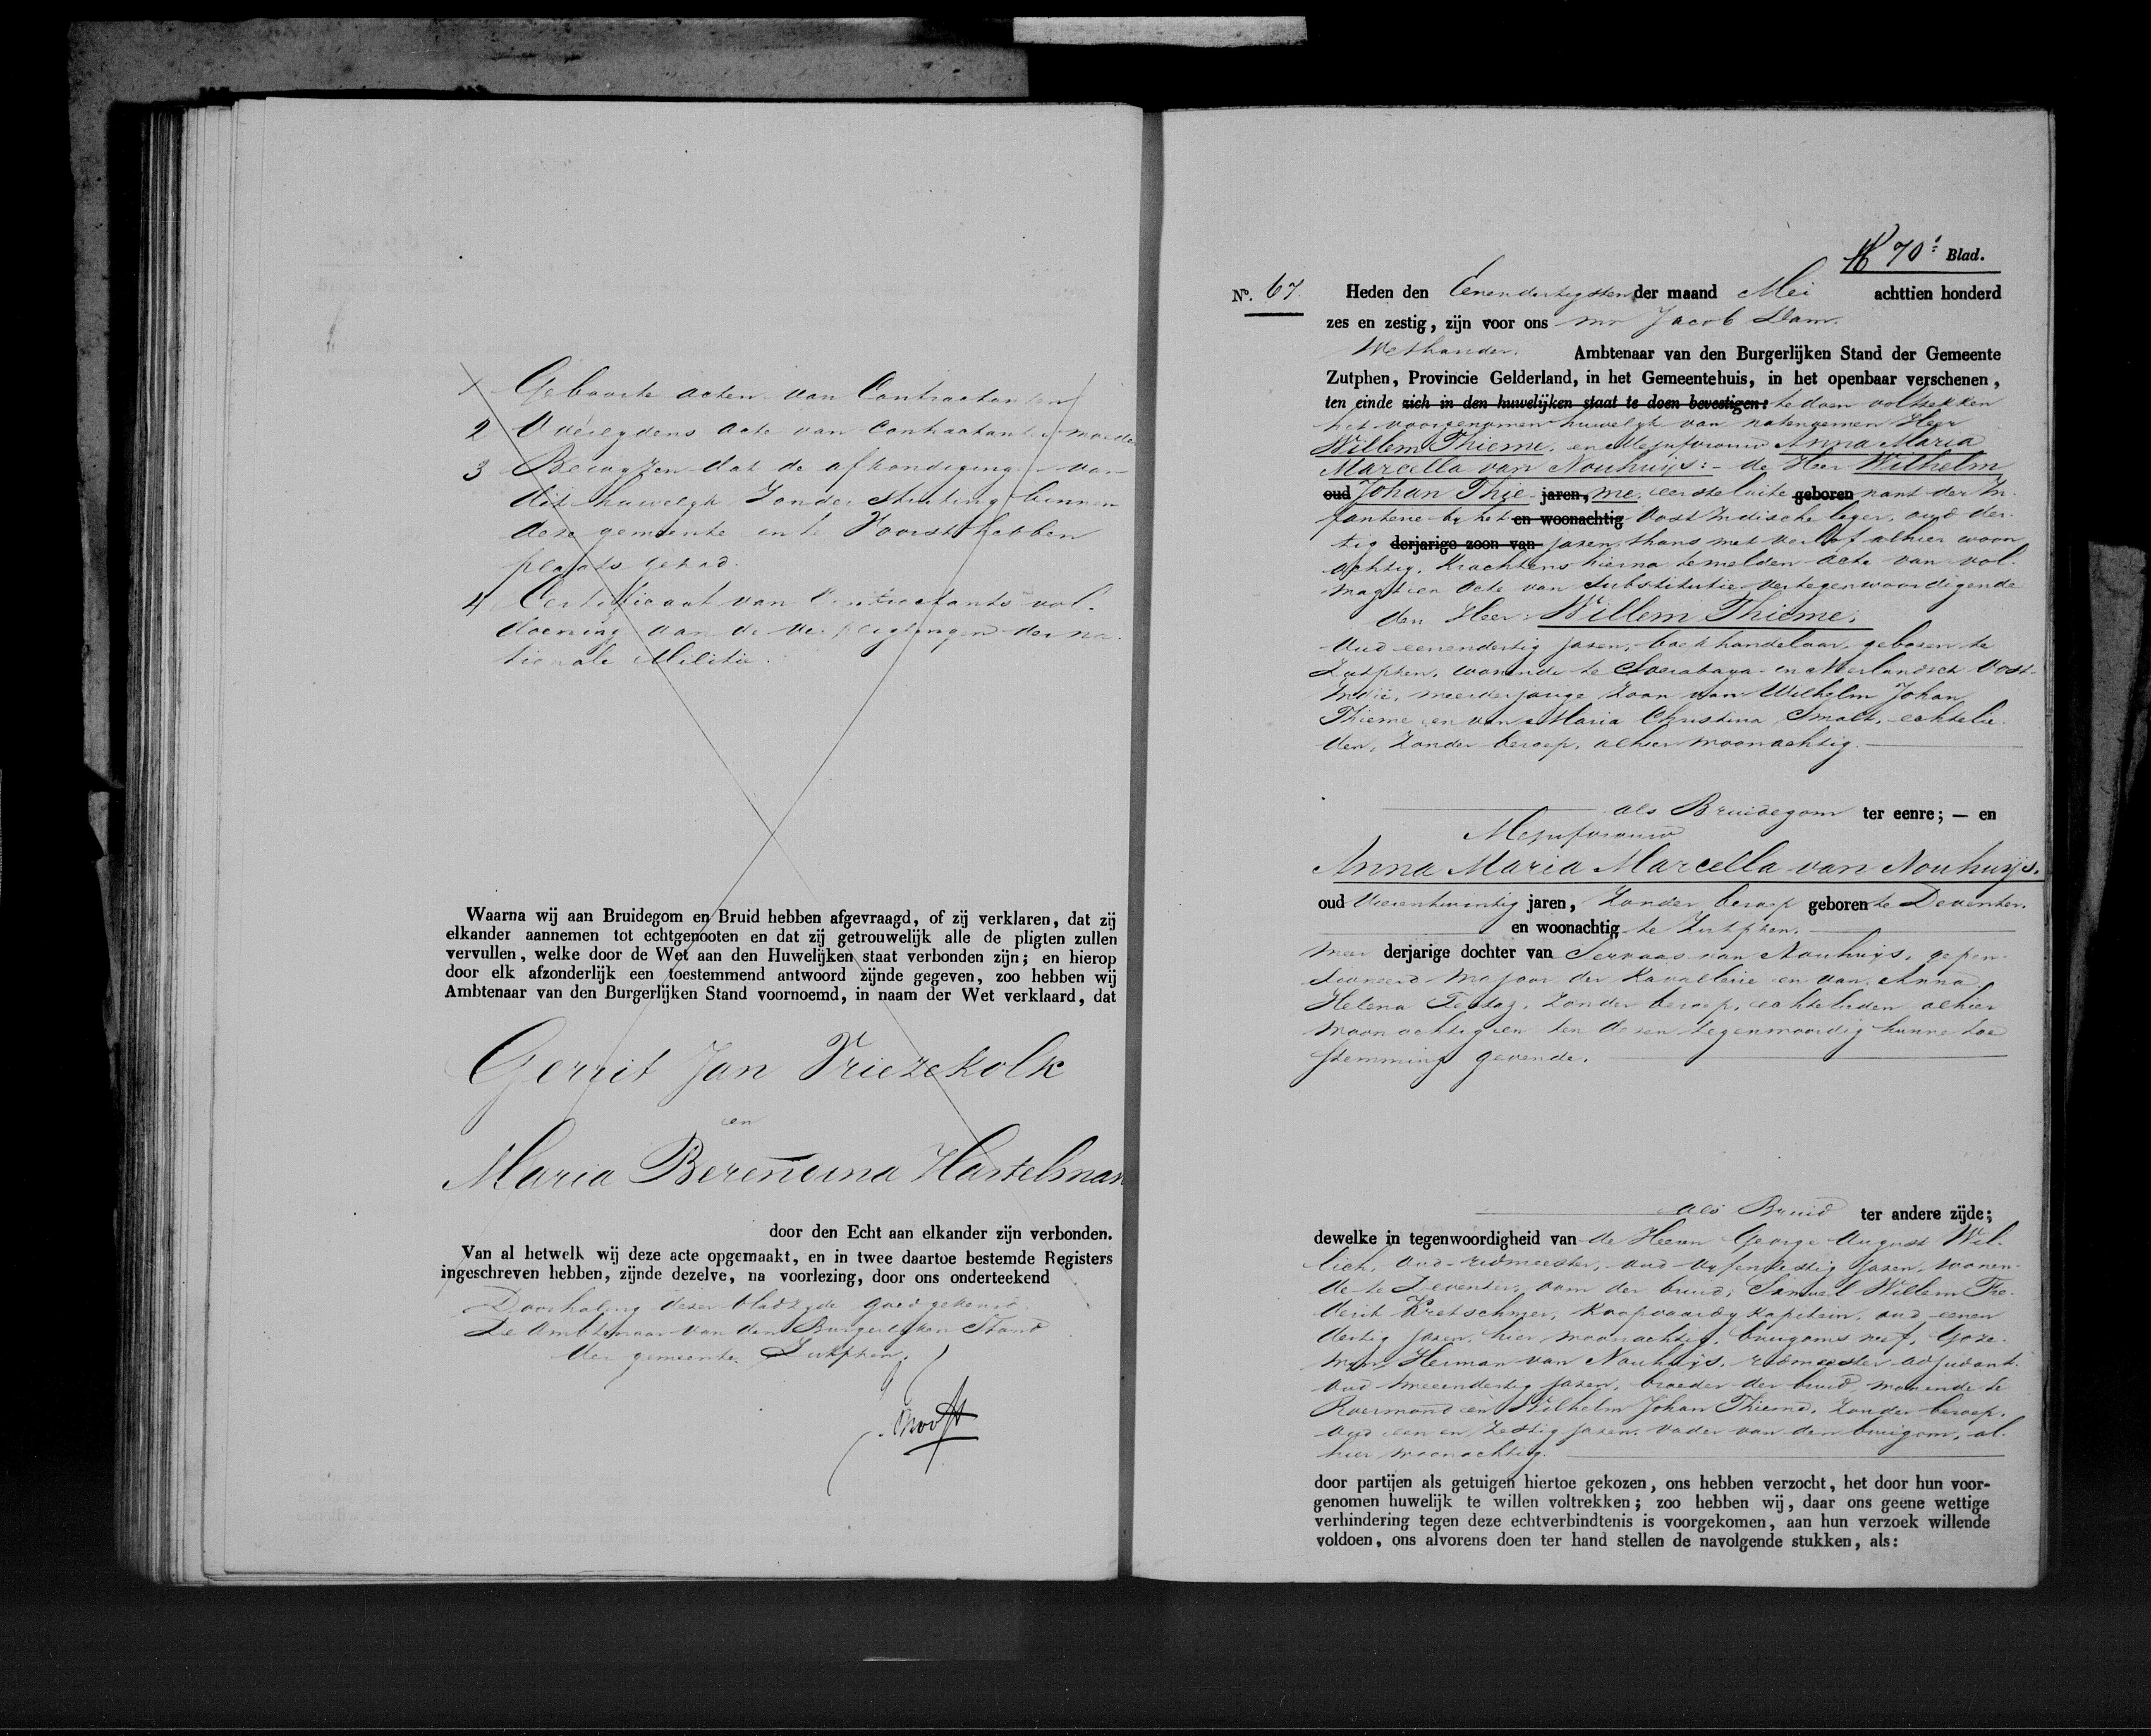 1 Geboorte acten van Contractanten
2 Overlydens acte van Contractants moeder
3 Bewyzen dat de afkondigingen van
dit huwelyk zonder stuiting binnen
deze gemeente en te Voorst hebben
plaats gehad.
4 Certificaat van Contractants vol-
doening aan de verpligtingen der na-
tionale Militie.
Waarna wij aan Bruidegom en Bruid hebben afgevraagd, of zij verklaren, dat zij
elkander aannemen tot echtgenooten en dat zij getrouwelijk alle de pligten zullen
vervullen, welke door de Wet aan den Huwelijken staat verbonden zijn; en hierop
door elk afzonderlijk een toestemmend antwoord zijnde gegeven, zoo hebben wij
Ambtenaar van den Burgerlijken Stand voornoemd, in naam der Wet verklaard, dat
Gerrit Jan Vriezekolk
en
Maria Berendina Hartelman
door den Echt aan elkander zijn verbonden.
Van al hetwelk wij deze acte opgemaakt, en in twee daartoe bestemde Registers
ingeschreven hebben, zijnde dezelve, na voorlezing, door ons onderteekend
Doorhaling dezer bladzyde goedgekeurd.
De Ambtenaar van den Burgerlyken Stand
der gemeente Zutphen,
70e Blad.
No. 67. Heden den Eenendertigsten der maand Mei achttien honderd
zes en zestig, zijn voor ons Mr Jacob Dam.
Wethouder. Ambtenaar van den Burgerlijken Stand der Gemeente
Zutphen, Provincie Gelderland, in het Gemeentehuis, in het openbaar verschenen,
ten einde zich in den huwelijken staat te doen bevestigen: te doen voltrekken
het voorgenomen huwelyk van natenoemen Heer
Willem Thieme, en Mejufvrouw Anna Maria
Marcella van Nouhuijs: - de Heer Wilhelm
oud Johan Thie- jaren, me, eerste luite geboren nant der In-
fanterie by het en woonachtig Oost Indische leger, oud der-
tig derjarige zoon van jaren, thans met verlof alhier woon
achtig, krachtens hierna temelden acte van vol-
magt en acte van Substitutie vertegenwoordigende
den Heer Willem Thieme,
oud eenendertig jaren, boekhandelaar, geboren te
Zutphen, wonende te Soerabaya in Nederlandsch Oost-
Indië, meerderjarige zoon van Wilhelm Johan
Thieme en van Maria Christina Smalt, echtelie-
den, zonder beroep, alhier woonachtig.
als Bruidegom ter eenre; — en
Mejufvrouw
Anna Maria Marcella van Nouhuijs.
oud vierentwintig jaren, zonder beroep geboren te Deventer.
en woonachtig te Zutphen.
meer derjarige dochter van Servaas van Nouhuijs, gepen-
sioneerd Majoor der Kavallerie en van Anna
Helena zonder beroep, echtelieden alhier
woonachtig en ten dezen tegenwoordig hunne toe
stemming gevende.
als Bruid ter andere zijde;
dewelke in tegenwoordigheid van de Heeren George August Wil-
lich, oud-ridmeester, oud vyfenzestig jaren, wonen-
de te Deventer, oom der bruid, Samuel Willem Fre-
derik Kretschmer, koopvaardy kapitein, oud eenen
dertig jaren, hier woonachtig, bruigoms neef, Goze-
wyn Herman van Nouhuijs, ridmeester adjudant.
oud tweeendertig jaren, broeder der bruid, wonende te
Roermond en Wilhelm Johan Thieme, zonder beroep,
oud een en zestig jaren, vader van den bruigom, al-
hier woonachtig.
door partijen als getuigen hiertoe gekozen, ons hebben verzocht, het door hun voor-
genomen huwelijk te willen voltrekken; zoo hebben wij, daar ons geene wettige
verhindering tegen deze echtverbindtenis is voorgekomen, aan hun verzoek willende
voldoen, ons alvorens doen ter hand stellen de navolgende stukken, als: